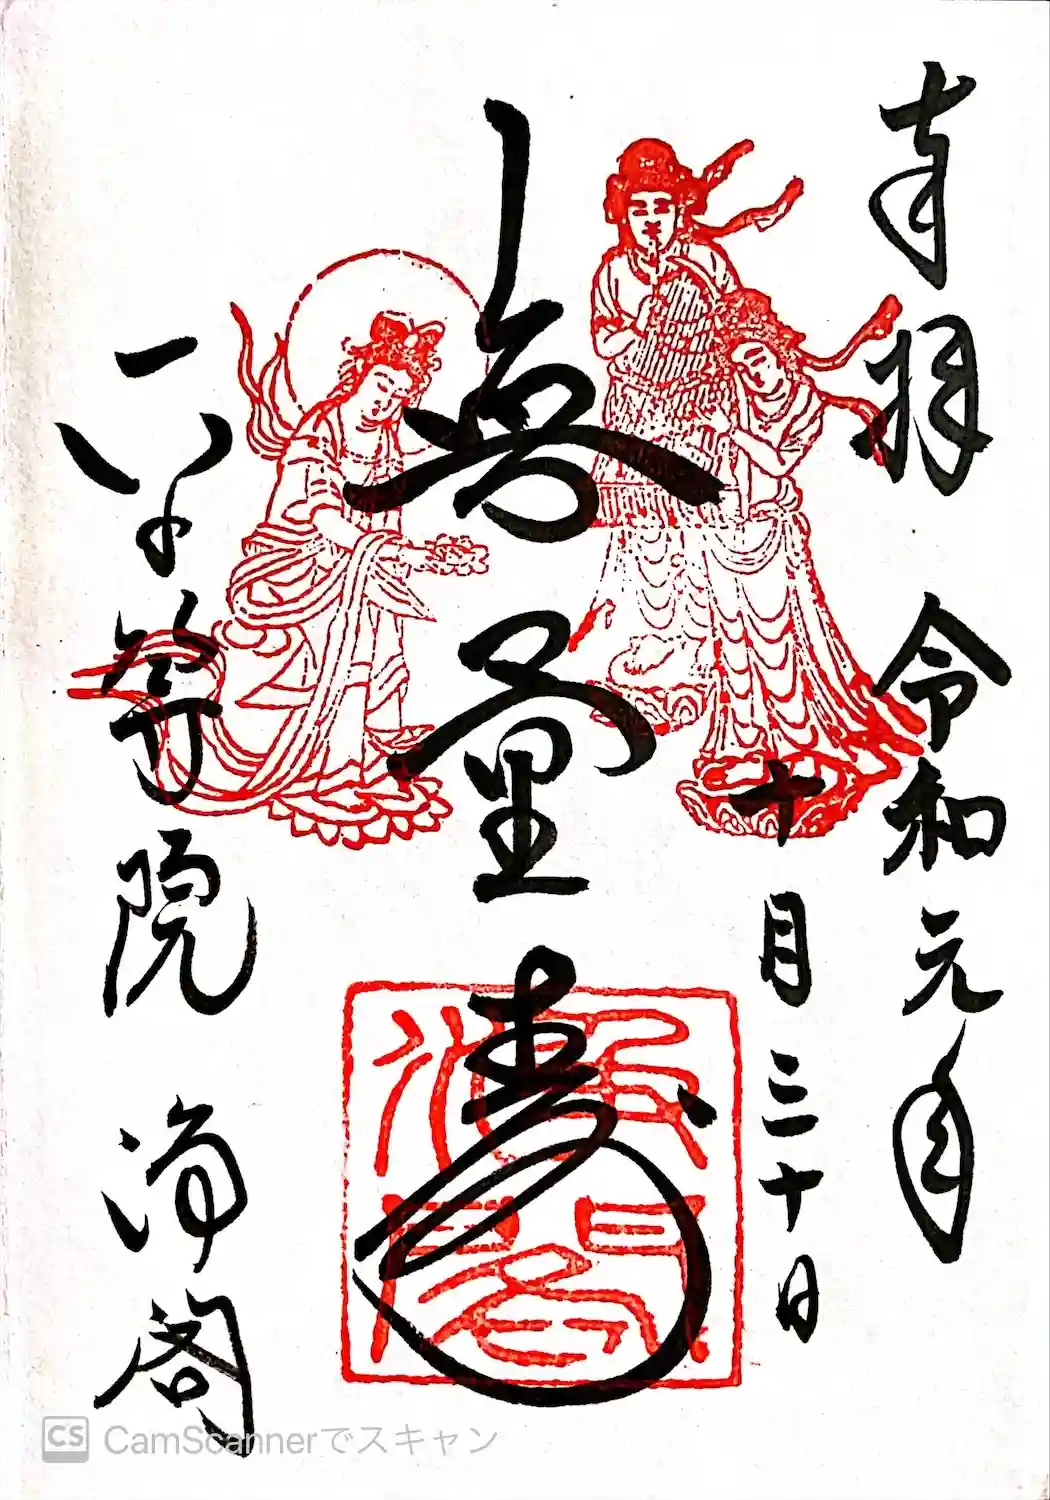 奉拝 令和元年
十月三十日
無量寿
平等院 浄閣
CS CamScannerでスキャン